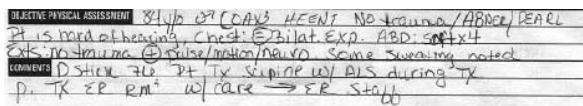 OBJECTIVE PHYSICAL ASSESSMENT 84 y/o ♂ COA x3 HEENT NO trauma/ABNER/PEARL
Pt is hard of hearing, Chest: ⊜Bilat. EXP. ABD: soft x4
Exts: no trauma ⊕ Pulse/motion/neuro some sweating noted
COMMENTS D Stick Pt Tx supine w/ ALS during TX
p. TX ER Rm² w/ care → ER Staff